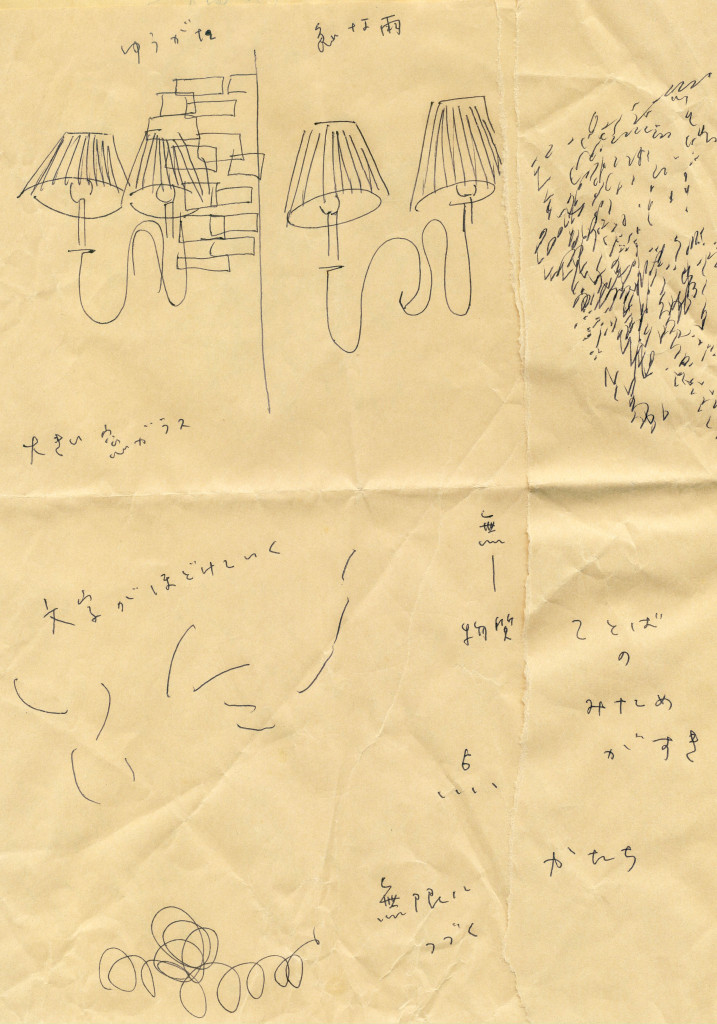 ゆうがた
急な雨
大きい窓ガラス
文字がほどけていく
無
物質
ことば
の
みため
がすき
かたち
無限に
つづく